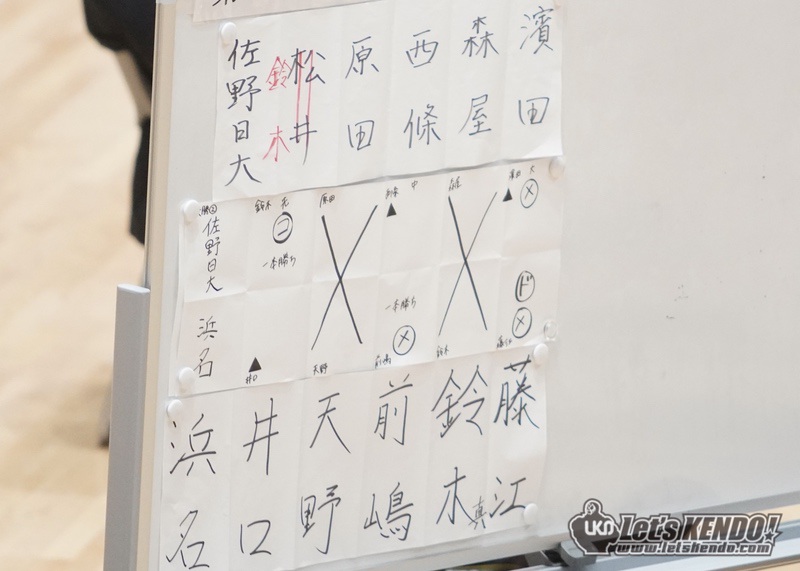 佐野日大
鈴木
松井
原田
西條
森屋
濱田
佐野日大
鈴木
コ
一本勝ち
原田
中
森屋
メ
浜名
井口
天野
一本勝ち
メ
前嶋
鈴木
ド
メ
藤江
浜名
井口
天野
前嶋
鈴木真
藤江
LKD Let's KENDO!
www.letskendo.com